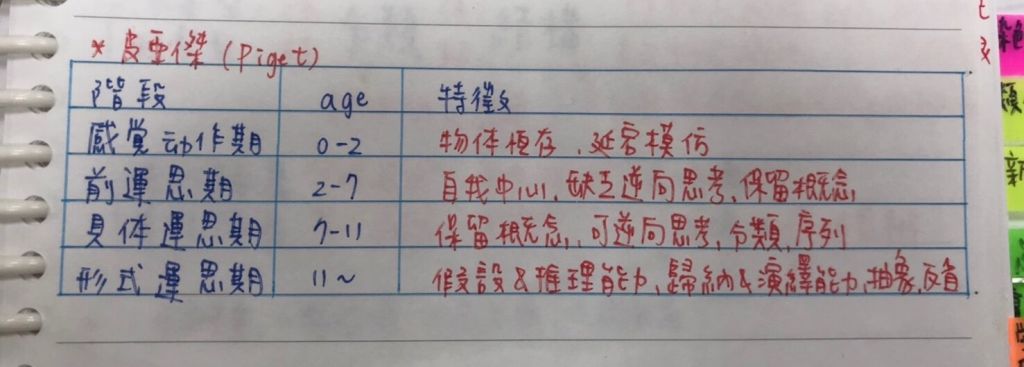 * 皮亞傑 (Piget)
階段 age 特徵
感覚动作期 0-2 物体恆存、延宕模仿
前運思期 2-7 自我中心、缺乏逆向思考、保留概念
具体運思期 7-11 保留概念、可逆向思考、分類、序列
形式運思期 11~ 假設&推理能力、歸納&演繹能力、抽象、反省